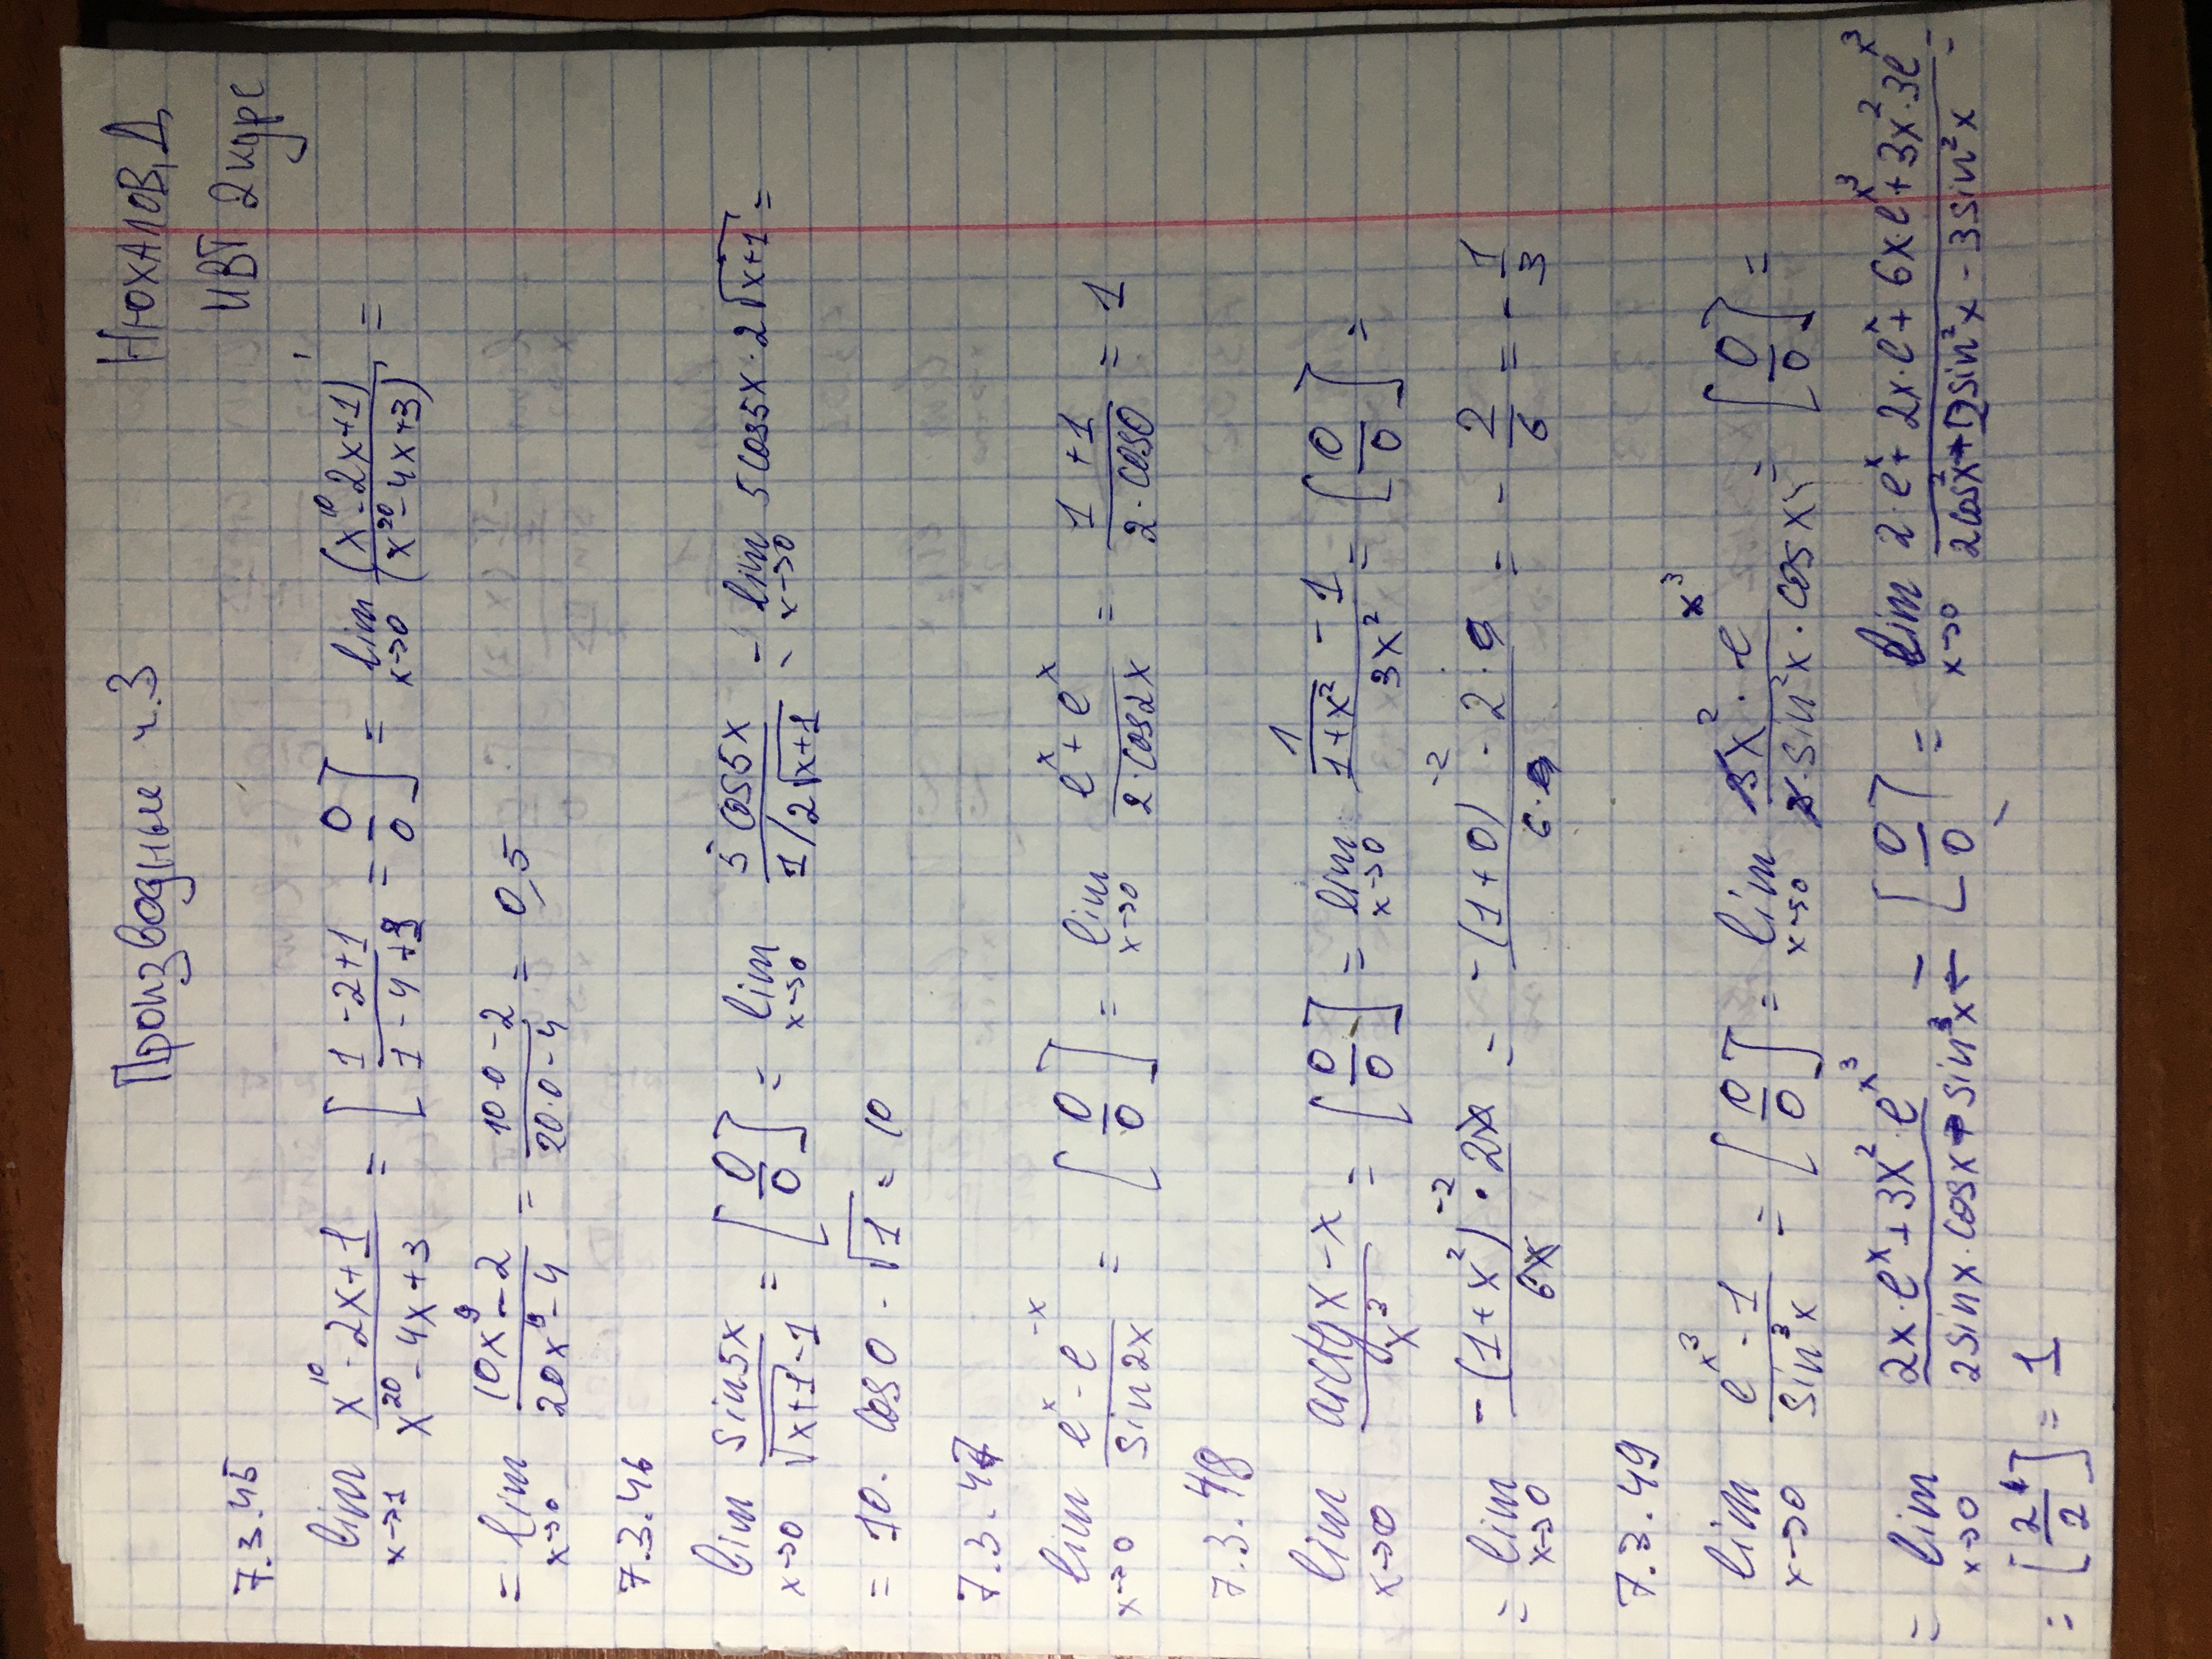 Производные ч.3
Нюхалов, Д
ИВТ 2 курс
7.3.45
lim x→1 (x^10 - 2x + 1)/(x^20 - 4x + 3) = [(1 - 2 + 1)/(1 - 4 + 3) = 0/0] = lim x→0 (x^10 - 2x + 1)'/(x^20 - 4x + 3)' =
= lim x→0 (10x^9 - 2)/(20x^19 - 4) = (10·0 - 2)/(20·0 - 4) = 0,5
7.3.46
lim x→0 sin5x/(√(x+1) - 1) = [0/0] = lim x→0 5cos5x/(1/2√(x+1)) = lim x→0 5cos5x · 2√(x+1) =
= 10 · cos0 · √1 = 10
7.3.47
lim x→0 (e^x - e^-x)/sin2x = [0/0] = lim x→0 (e^x + e^x)/(2·cos2x) = (1 + 1)/(2·cos0) = 1
7.3.48
lim x→0 (arctgx - x)/x^3 = [0/0] = lim x→0 (1/(1+x^2) - 1)/3x^2 = [0/0] =
= lim x→0 (-(1+x^2)^-2 · 2x)/6x = (-(1+0)^-2 · 2·0)/(6·0) = -2/6 = -1/3
7.3.49
lim x→0 (e^x^3 - 1)/sin^3x = [0/0] = lim x→0 (3x^2 · e^x^3)/(3·sin^2x · cosx) = [0/0] =
= lim x→0 (2x·e^x + 3x^2·e^x^3)/(2sinx·cosx - sin^3x) = [0/0] = lim x→0 (2·e^x + 2x·e^x + 6x·e^x^3 + 3x^2·3e^x^3)/(2cos^2x + 2sin^2x - 3sin^2x) =
= [2/2] = 1